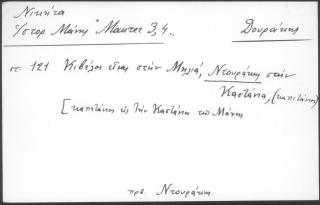 Νικήτα
Ἱστορ. Μάνης Maurer 3, 4., Δουράκης
στ. 121 Κιβέλος εἶναι στήν Μηλιά, Ντουράκης στήν
Καστάνια, (καπιτάνος)
[καπιτάνος εἰς τήν Καστάνια τῆς Μάνης
πρβ. Ντουράκης.